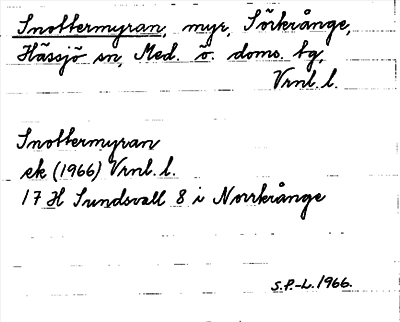 Snottermyran, myr, Sörkrånge,
Hässjö sn, Med. ö. doms. tg,
Vrnl. l.
Snottermyran
ek (1966) Vrnl. l.
17 H Sundsvall 8 i Norrkrånge
S.P.-L. 1966.